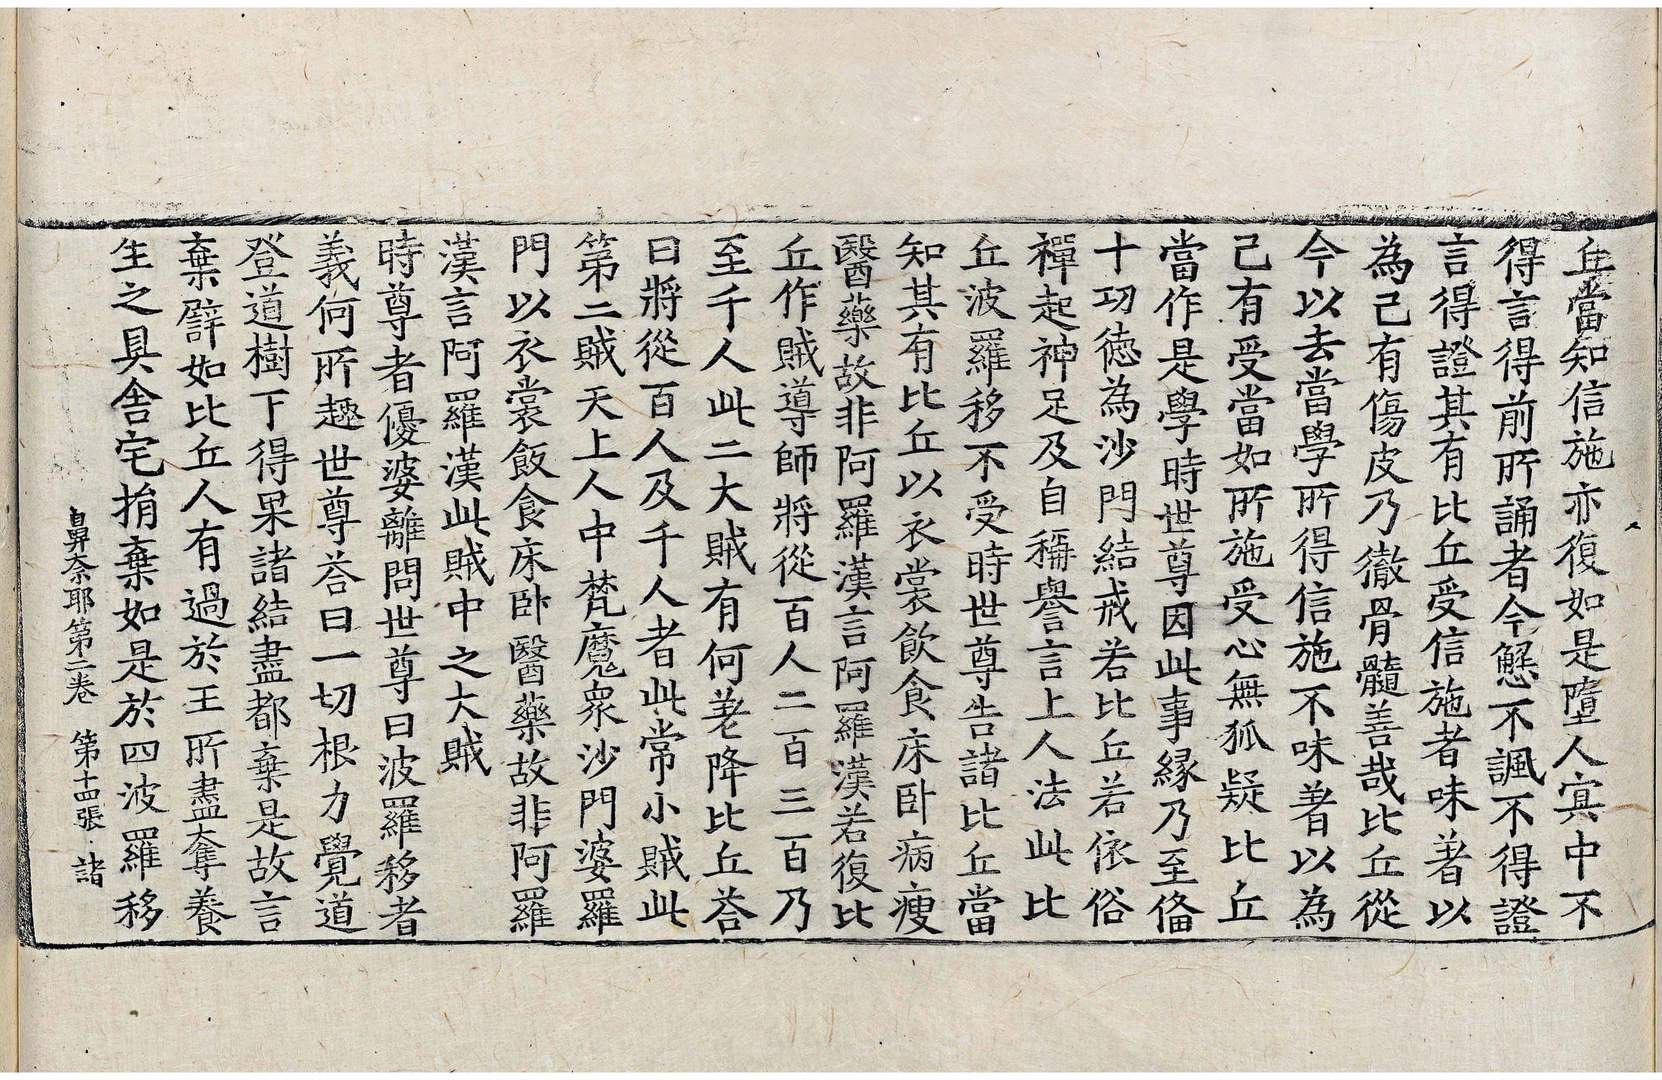 丘當知信施亦復如是墮人㝠中不
得言得得前所誦者今懸不諷不得證
言得證其有比丘受信施者味著以
為己有傷皮乃徹骨髓善哉比丘從
今以去當學所得信施不味著以為
己有受當如所施受心無狐疑比丘
當作是學時世尊因此事緣乃至俻
十功德為沙門結戒若比丘若依俗
禪起神足及自稱譽言上人法此比
丘波羅移不受時世尊告諸比丘當
知其有比丘以衣裳飲食床卧病瘦
醫藥故非阿羅漢言阿羅漢若復比
丘作賊導師將從百人二百三百乃
至千人此二大賊有何差降比丘荅
曰將從百人及千人者此常小賊此
第二賊天上人中梵魔衆沙門婆羅
門以衣裳飯食床卧醫藥故非阿羅
漢言阿羅漢此賊中之大賊
時尊者優婆離問世尊曰波羅移者
義何所趣世尊荅曰一切根力覺道
登道樹下得果諸結盡都棄是故言
棄譬如比丘人有過於王所盡奪養
生之具舍宅捐棄如是於四波羅移
鼻奈耶第二卷 第十四張 諸